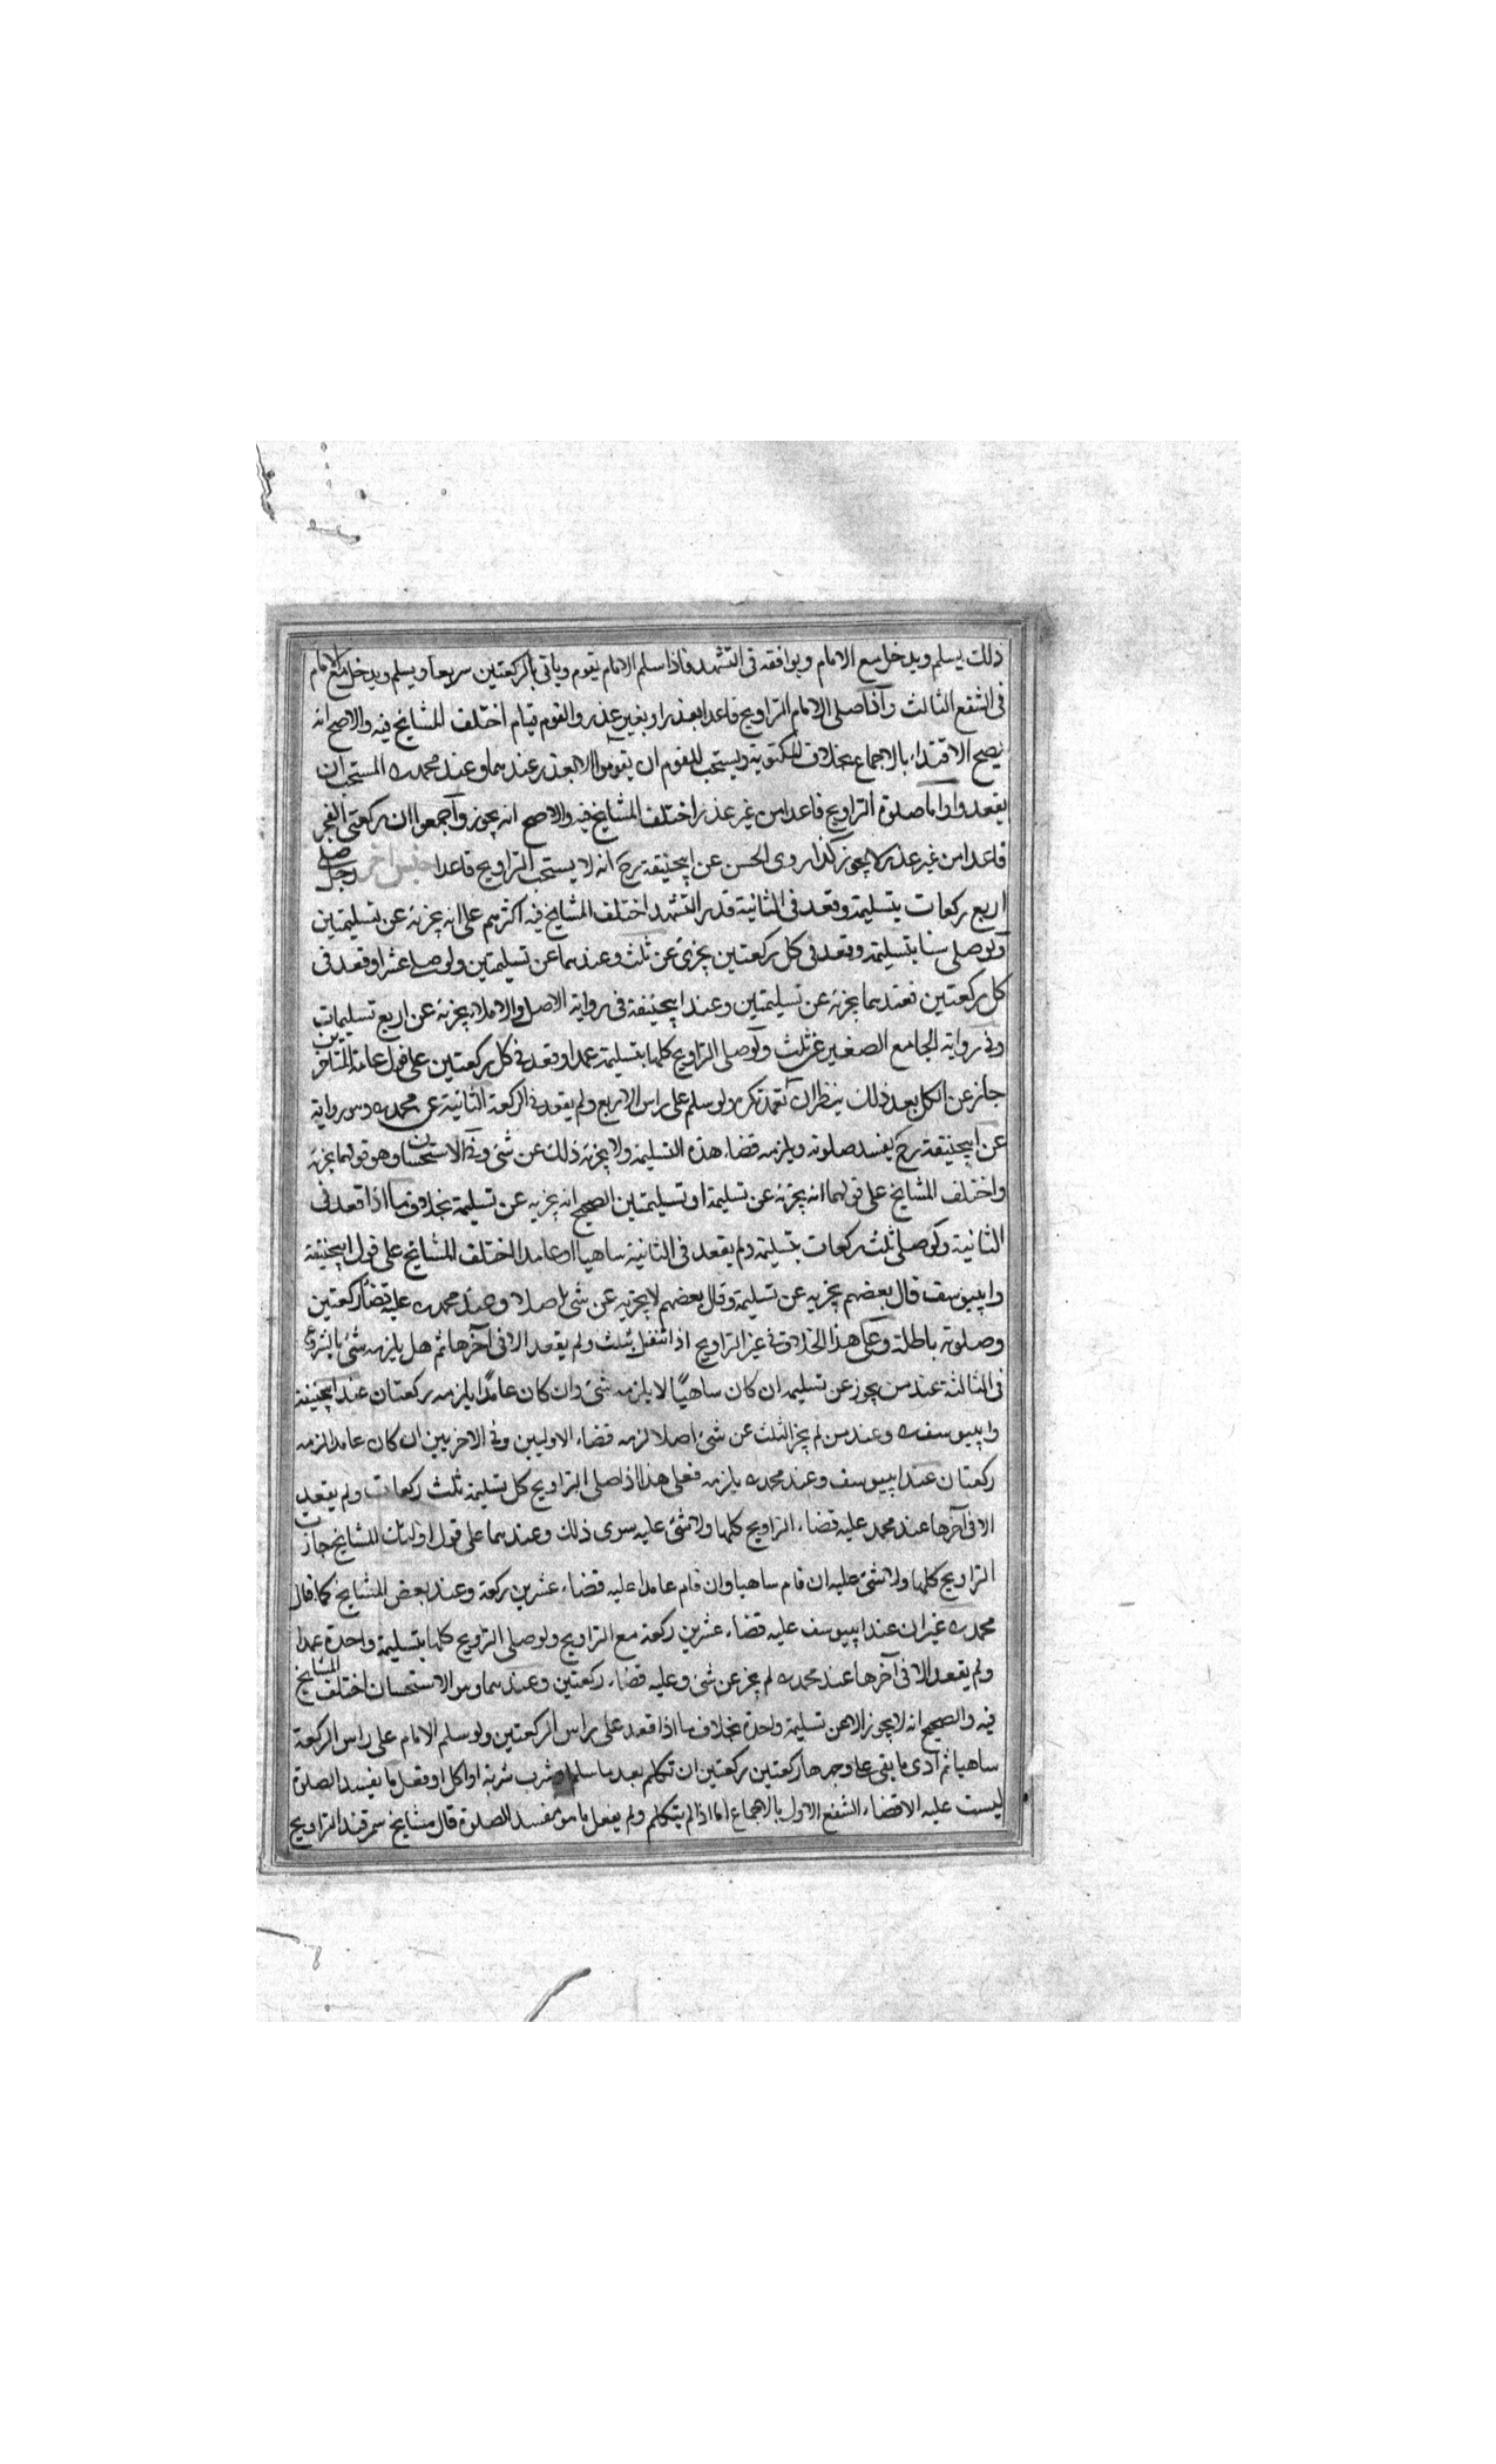 ذلك يسلم ويدخل مع الامام ويوافقه فى التشهد فاذا سلم الامام يقوم وياتى بالركعتين سريعا ويسلم ويدخل مع الامام
فى الشفع الثالث واذا صلى الامام التراويح قاعدا بعذر او بغير عذر والقوم قيام اختلف المشايخ فيه والاصح انه
يصح الاقتداء بالاجماع بخلاف المكتوبة ويستحب للقوم ان يقوموا الا لعذر عندهما وعند محمد ره المستحب ان
يقعدوا واما صلوة التراويح قاعدا من غير عذر اختلف المشايخ فيه والاصح انه يجوز واجمعوا ان ركعتى الفجر
قاعدا من غير عذر لا يجوز كذا روى الحسن عن ابيحنيفة رح انه لا يستحب التراويح قاعدا جنس اخر رجل صلى
اربع ركعات بتسليمة وقعد فى الثانية قدر التشهد اختلف المشايخ فيه اكثرهم على انه يجزئه عن تسليمتين
ولو صلى ستا بتسليمة وقعد فى كل ركعتين يجزئ عن ثلث وعندهما عن تسليمتين ولو صلى عشرا وقعد فى
كل ركعتين فعندهما يجزئه عن تسليمتين وعند ابيحنيفة فى رواية الاصل والاملاء يجزئه عن اربع تسليمات
وفى رواية الجامع الصغير عن ثلث ولو صلى التراويح كلها بتسليمة عمدا وقعد فى كل ركعتين على قول عامة المتاخرين
جاز عن الكل بعد ذلك ينظر ان تعمد تكره ولو سلم على راس الاربع ولم يقعد فى الركعة الثانية عن محمد ره وهو رواية
عن ابيحنيفة رح يفسد صلوته ويلزمه قضاء هذه التسليمة ولا يجزئه ذلك عن شئ وفى الاستحسان وهو قولهما يجزئه
واختلف المشايخ على قولهما انه يجزئه عن تسليمة او تسليمتين الصحيح انه يجزيه عن تسليمة بخلاف ما اذا قعد فى
الثانية ولو صلى ثلث ركعات بتسليمة ولم يقعد فى الثانية ساهيا او عامدا اختلف المشايخ على قول ابيحنيفة
وابييوسف قال بعضهم يجزيه عن تسليمة وقال بعضهم لا يجزيه عن شئ اصلا وعند محمد ره عليه قضاء ركعتين
وصلوته باطلة وعلى هذا الخلاف فى غير التراويح اذا تنفل بثلث ولم يقعد الا فى آخرها ثم هل يلزمه شئ بالشروع
فى الثالثة عند من يجوز عن تسليمة ان كان ساهيًا لا يلزمه شئ وان كان عامدًا يلزمه ركعتان عند ابيحنيفة
وابييوسف ره وعند من لم يجز الثلث عن شئ اصلا لزمه قضاء الاوليين وفى الاخريين ان كان عامدا لزمه
ركعتان عند ابييوسف وعند محمد ره يلزمه فعلى هذا اذا صلى التراويح كل تسليمة ثلث ركعات ولم يقعد
الا فى آخرها عند محمد عليه قضاء التراويح كلها ولا شئ عليه سوى ذلك وعندهما على قول اولئك المشايخ جازت
التراويح كلها ولا شئ عليه ان قام ساهيا وان قام عامدا عليه قضاء عشرين ركعة وعند بعض المشايخ كما قال
محمد ره غير ان عند ابييوسف عليه قضاء عشرين ركعة مع التراويح ولو صلى التراويح كلها بتسليمة واحدة عمدا
ولم يقعد الا فى آخرها عند محمد ره لم يجز عن شئ وعليه قضاء ركعتين وعندهما وهو الاستحسان اختلف المشايخ
فيه والصحيح انه لا يجوز الا عن تسليمة واحدة بخلاف ما اذا قعد على راس الركعتين ولو سلم الامام على راس الركعة
ساهيا ثم ادى ما بقى على وجهها ركعتين ركعتين ان تكلم بعد ما سلم او شرب شربة او اكل او فعل ما يفسد الصلوة
ليست عليه الا قضاء الشفع الاول بالاجماع اما اذا لم يتكلم ولم يفعل ما هو مفسد للصلوة قال مشايخ سمرقند التراويح